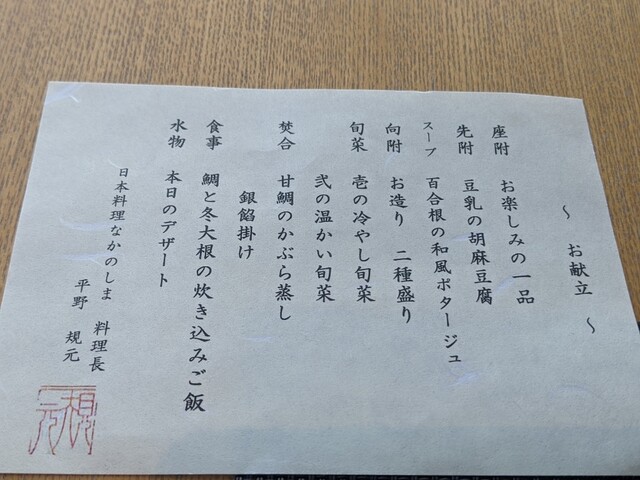 ～ お献立 ～
座附 お楽しみの一品
先附 豆乳の胡麻豆腐
スープ 百合根の和風ポタージュ
向附 お造り 二種盛り
旬菜 壱の冷やし旬菜
弐の温かい旬菜
焚合 甘鯛のかぶら蒸し
銀餡掛け
食事 鯛と冬大根の炊き込みご飯
水物 本日のデザート
日本料理なかのしま 料理長
平野 規元
規元